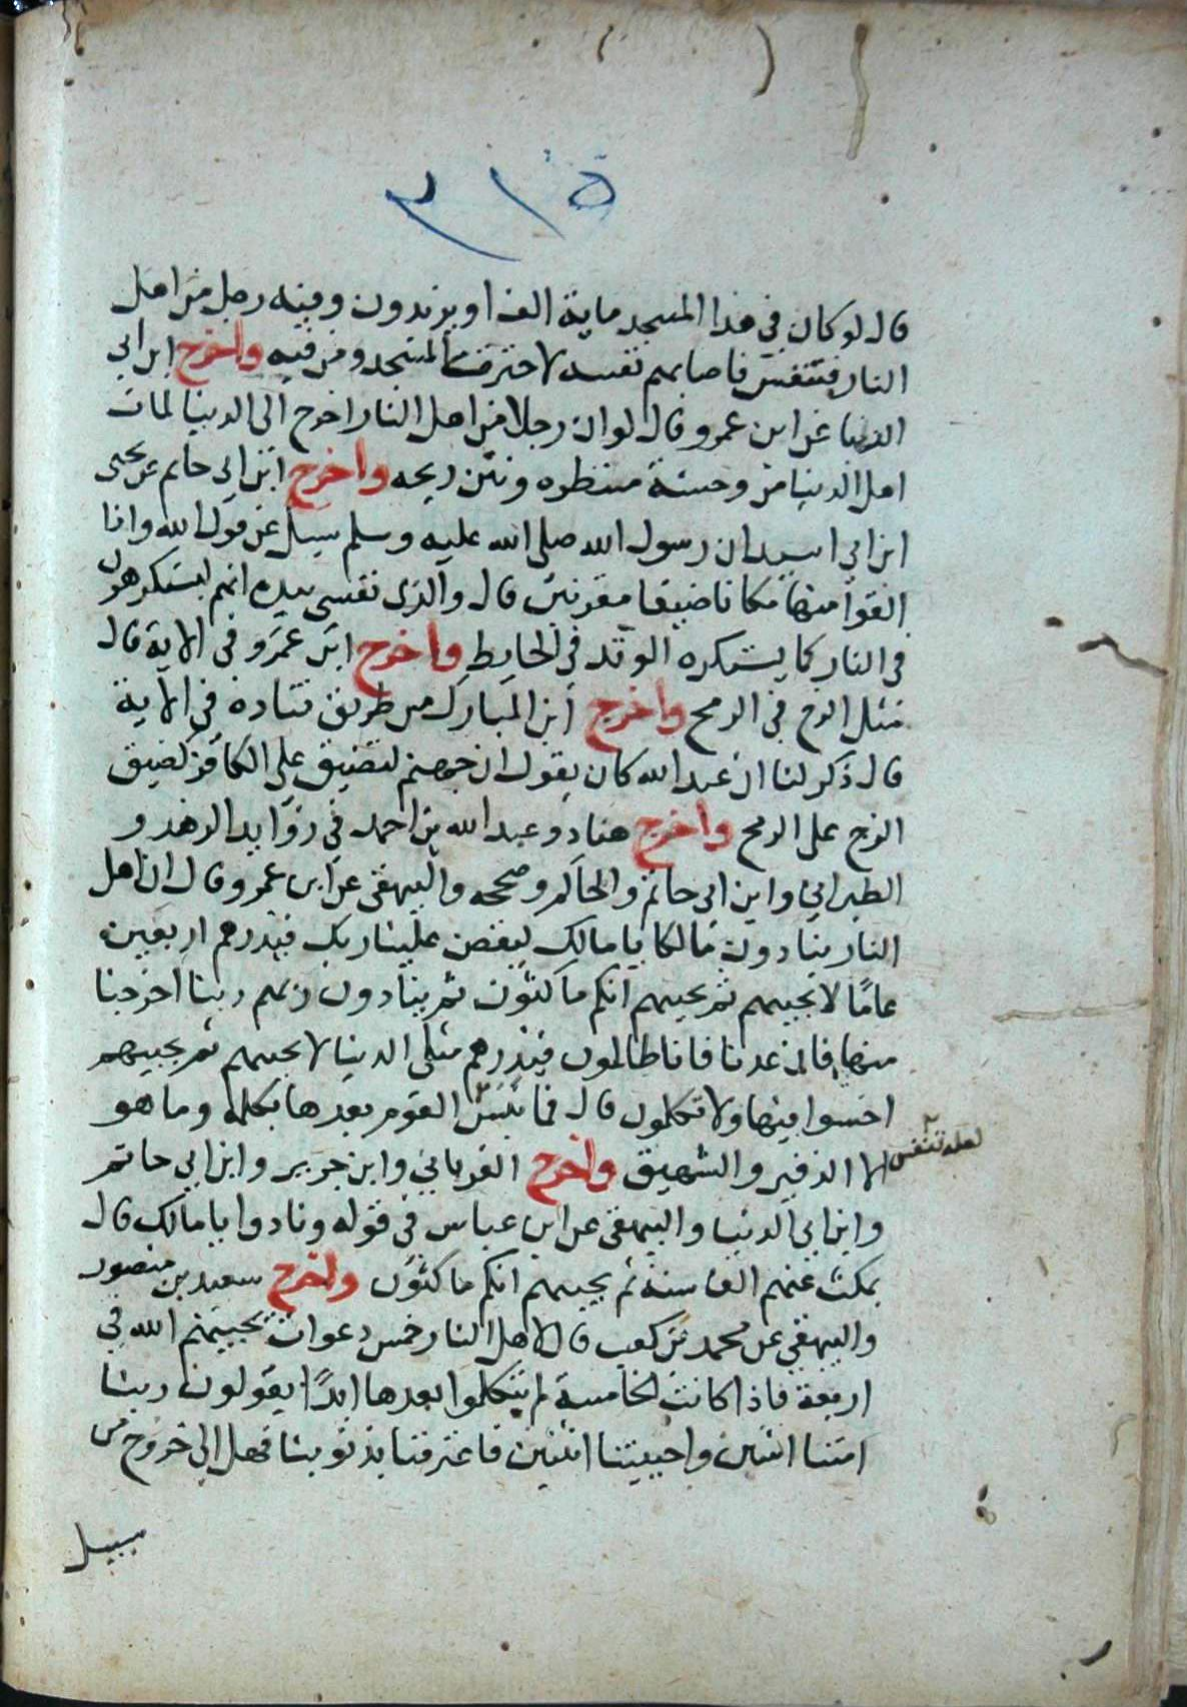 ٣١٥
قال لو كان في هذا المسجد ماية الف او يزيدون وفيه رجل من اهل
النار فتنفس فاصابهم نفسه لاحترقت المسجد ومن فيه واخرج ابن ابي
الدنيا عن ابن عمرو قال لو ان رجلا من اهل النار اخرج الى الدنيا لمات
اهل الدنيا من وحشة منظره ونتن ريحه واخرج ابن ابي حاتم عن يحيى
ابن ابي اسيد ان رسول الله صلى الله عليه وسلم سيل عن قول الله واذا
القوا منها مكانا ضيقا مقرنين قال والذي نفسي بيده انهم ليستكرهون
في النار كما يستكره الوتد في الحايط واخرج ابن عمرو في الاية قال
مثل الزج في الرمح واخرج ابن المبارك من طريق قتادة في الاية
قال ذكر لنا ان عبد الله كان يقول ان جهنم لتضيق على الكافر كضيق
الزج على الرمح واخرج هناد وعبد الله بن احمد في زوايد الزهد و
الطبراني وابن ابي حاتم والحاكم وصححه والبيهقي عن ابن عمرو قال ان اهل
النار ينادون مالكا يا مالك ليقض علينا ربك فيذرهم اربعين
عامًا لا يجيبهم ثم يجيبهم انكم ماكثون ثم ينادون ربهم ربنا اخرجنا
منها فان عدنا فانا ظالمون فيذرهم مثلى الدنيا لا يجيبهم ثم يجيبهم
اخسوا فيها ولا تكلمون قال فما ينبس القوم بعدها بكلمة وما هو
لعله تنفس
الا الزفير والشهيق واخرج الفريابي وابن جرير وابن ابي حاتم
وابن ابي الدنيا والبيهقي عن ابن عباس في قوله ونادوا يا مالك قال
يمكث عنهم الف سنة ثم يجيبهم انكم ماكثون واخرج سعيد بن منصور
والبيهقي عن محمد بن كعب قال لاهل النار خمس دعوات يجيبهم الله في
اربعة فاذا كانت الخامسة لم يتكلموا بعدها ابدًا يقولون ربنا
امتنا اثنين واحييتنا اثنتين فاعترفنا بذنوبنا فهل الى خروج من
سبيل